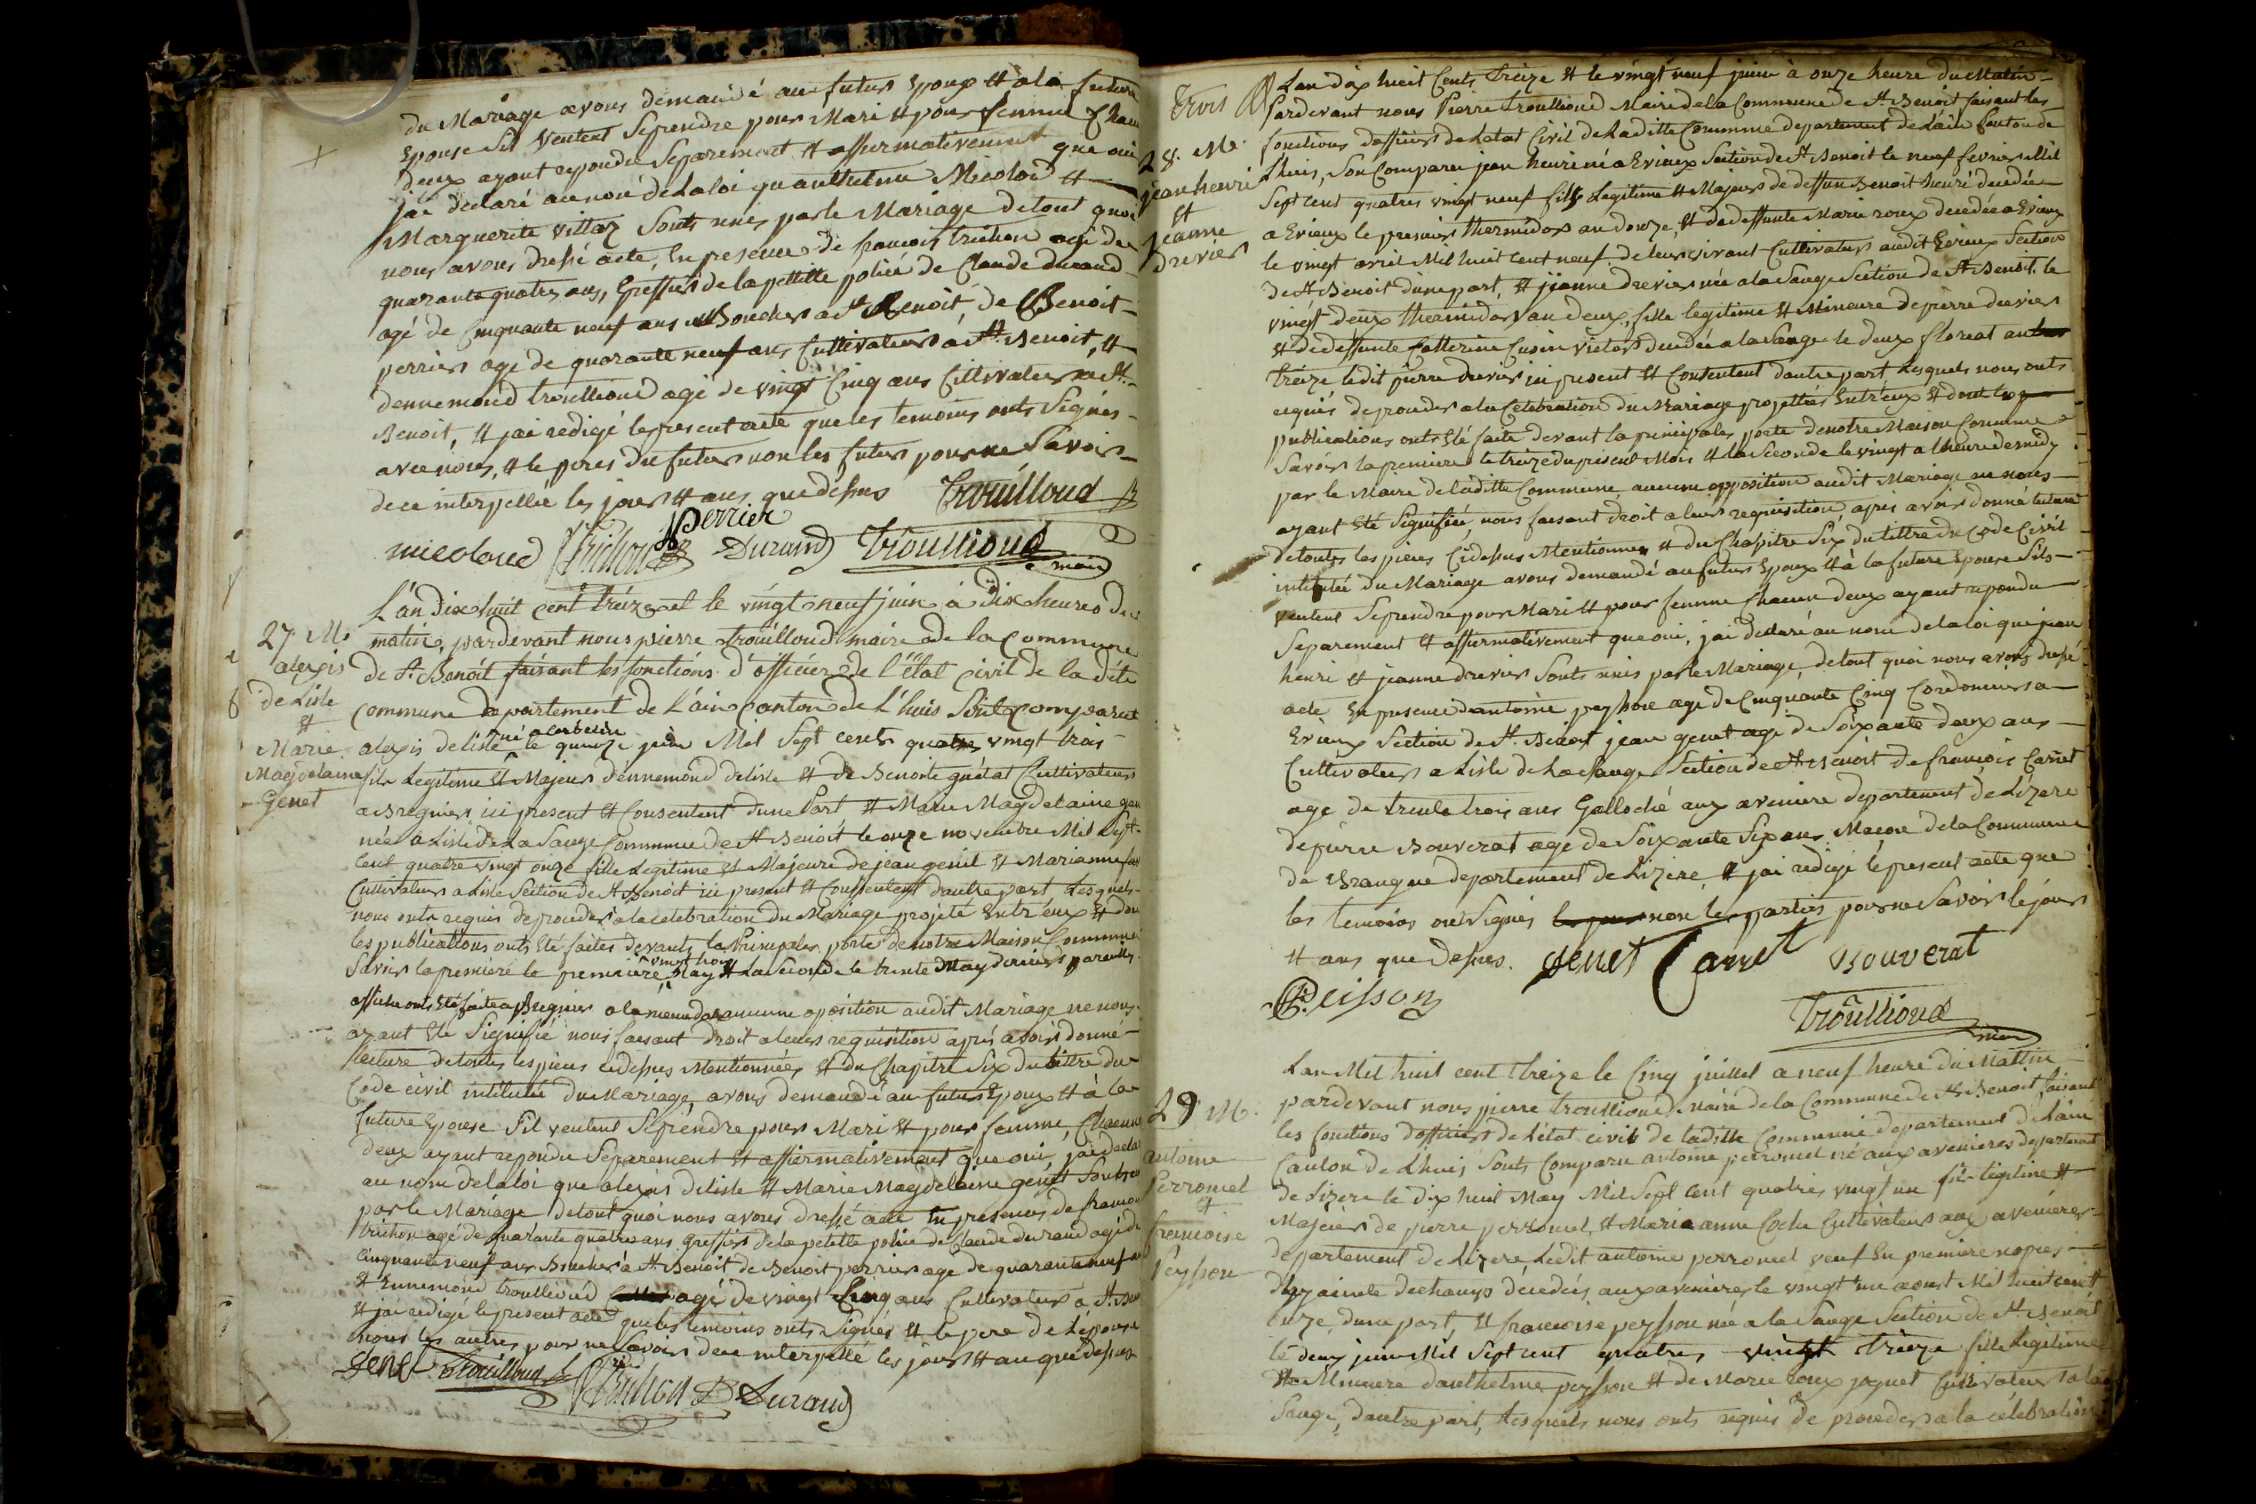 du Mariage avons demandé au futur Epoux et a la future
Epouse sil veulent se prendre pour Mari et pour femme Chacun
deux ayant repondu Separement et affirmativement que oui
jai declaré au nom de la loi quanthelme Micoloud et
Marguerite villaz Sonts unis par le Mariage de tout quoi
nous avons dressé acte, En presence de francois trichon agé de
quarante quatres ans, Greffier de la petitte police de Claude durand
agé de Cinquante neuf ans Boucher a St Benoit, de Benoit
perrier agé de quarante neuf ans Cultivateur a St Benoit, et
dennemond trouilloud agé de vingt Cinq ans Cultivateur a St
Benoit, et jai redigé le present acte que les temoins onts Signés
avec nous, et le peres du futur non les futurs pour ne Savoir
de ce interpellée les jours et ans que dessus Trouilloud
micoloud Trichon Perrier Durand Trouilloud
maire
L'an dix huit cent treize et le vingt neuf juin à dix heures du
27 M.
alexis
de Lisle
et
Marie
Magdelaine
Genet
matin, pardevant nous pierre trouilloud maire de la commune
de St Benoit faisant les fonctions d'officier de l'état civil de la dite
commune departement de L'ain canton de L'huis Sont comparut
né a corbelin
alexis delisle le quinze juin Mil Sept cents quatre vingt trois
fils Legitime et Majeur dennemond delisle et de Benoite guétat Cultivateurs
a Bregnier ici present et Consentent dune Part et Marie Magdelaine gen
née a Lisle de La Sauge Commune de St Benoit le onze novembre Mil Sept
Cent quatre vingt onze fille Legitime et Majeure de jean genet et Marianne
Cultivateurs a Lisle Section de St Benoit ici present et Consentent dautre part Lesquels
nous onts requis de proceder a la celebration du Mariage projeté Entr'eux et don
les publications onts Eté faites devants la Principales porte de notre Maison Commune
vingt trois
Savoir la premiere le May et La Seconde le trente May dernier pareilles
affiche onts Eté faite a Bregnier a la meme date aucune oposition audit Mariage ne nous
ayant Eté Signifié nous faisant droit a leurs requisition aprés avoir donné
lecture de toutes les pieces cidessus Mentionnées et du Chapitre Six du tittre du
Code civil intitulée du Mariage, avons demandé au futur Epoux et à la
future Epouse Sil veulent Seprendre pour Mari et pour femme, Chacun
deux ayant repondu Separement et affirmativement que oui, jai declar
au nom de la loi que alexis delisle et Marie Magdelaine genet Sont unis
par le Mariage de tout quoi nous avons dressé acte En presences de francois
trichon agé de quarante quatres ans greffier de la petette police de Claude durand agé de
Cinquante neuf ans Boucher à St Benoit de Benoit perrier age de quarante neuf an
et Ennemond trouilloud agé de vingt Cinq ans Cultivateur a St Ben
et jai redigé le present acte que les temoins onts Signés et le pere de Lepouse
nous les autres pour ne Savoir de ce interpellé les jour et an que dessus
genet Trouilloud Trichon Durand
Trois
Lan dix huit Cents treize et le vingt neuf juin à onze heure du Matin
28. M.
jean henri
et
jeanne
drevier
Pardevant nous Pierre trouilloud Maire de la Commune de St Benoit faisant les
fonctions dofficier de Letat Civil de Laditte Commune departement de Lain Canton de
Lhuis, Son Comparu jean henri né a Evieux Section de St Benoit le neuf fevrier Mil
Sept Cent quatres vingt neuf fils Legitime et Majeur de deffun Benoit henri decedée
a Evieux le premier thermidor an douze, et de deffunte Marie roux decedée a Evieux
le vingt avril Mil huit Cent neuf de leur vivant Cultivateur audit Evieux Section
de St Benoit dune part, et jeanne drevier née a la Sauge Section de St Benoit le
vingt deux thermidor an deux, fille legitime et Mineure de pierre drevier
et de deffunte Catterine Cusin victor decedée a la Sauge le deux floreal an
treize ledit pierre drevier ici present et Consentent dautre part Lesquels nous onts
requis de proceder a la Celebration du Mariage projettées Entr'eux et dont les
publications onts Eté faite devant la principales porte de notre Maison Commune
Savoir la premiere le treize du present Mois et la Seconde le vingt a lheure de midy
par le Maire de laditte Commune, aucune opposition audit Mariage ne nous
ayant Eté Signifiée, nous faisant droit a leurs requisition, apres avoir donné lecture
de toutes les pieces Cidessus Mentionnes et du Chapitre Six du tittre du Code Civil
intitulée du Mariage avons demandé au futur Epoux et à la future Epouse Sils
veulent Seprendre pour Mari et pour femme Chacun deux ayant repondu
Separement et affirmativement que oui, jai declaré au nom de la loi que jean
henri et jeanne drevier Sonts unis par le Mariage, de tout quoi nous avons dressé
acte En presence dantoine peysson age de Cinquante Cinq Cordonnier a
Evieux Section de St. Benoit jean genet agé de Soixante deux ans
Cultivateur a Lisle de La Sauge Section de St Benoit de francois Carret
age de trente trois ans Galloché aux aveniere departement de Lizere
de pierre Bouverat age de Soixante Six ans Macon de la Commune
de Brangue departement de Lizere, et jai redigé le present acte que
les temoins ont Signés non les parties pour ne Savoir le jour
et ans que dessus. genet Carret Bouverat
Peisson
Trouilloud
maire
29 M.
antoine
Perromel
et
francoise
Peysson
Lan Mil huit cent treize le Cinq juillet a neuf heure du Mattin
pardevant nous pierre trouilloud maire de la Commune de St Benoit faisant
les fonctions dofficier de Létat civil de laditte Commune departement de Lain
Canton de Lhuis Sonts Comparu antoine perromel né aux avenieres departement
de Lizere le dix huit May Mil Sept Cent quatres vingt un fils legitime et
Majeur de pierre perromel et Marie anne Coche Cultivateurs aux avenieres
departement de Lizere Ledit antoine perromel veuf En premiere nopces
dhyacinte dechamp décedés aux avenieres le vingt un aoust Mil huit cent
onze, dune part, et francoise peysson née a la Sauge Section de St Benoit
le deux juin Mil Sept cent quatres vingt treize fille Legitime
et Mineure danthelme peysson et de Marie roux joquet Cultivateurs a la
Sauge, dautre part, Lesquels nous onts requis de proceder a la célebration